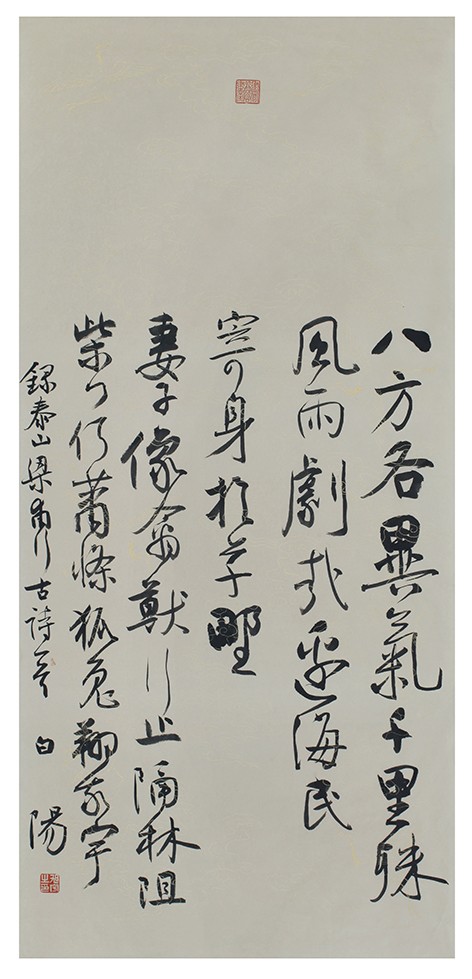 八方各異氣千里殊
風雨劇哉邊海民
寄身於草野
妻子像禽獸行止隔林阻
柴门何蕭條狐兔翔我宇
錄泰山梁甫行古詩一首 白陽